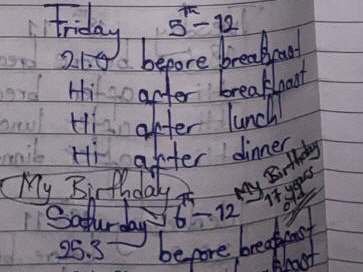 Friday 5th - 12
21.9 before breakfast
Hi after breakfast
Hi after lunch
Hi after dinner
My Birthday
My Birthday
17 years
Saturday 6th - 12
25.3 before breakfast